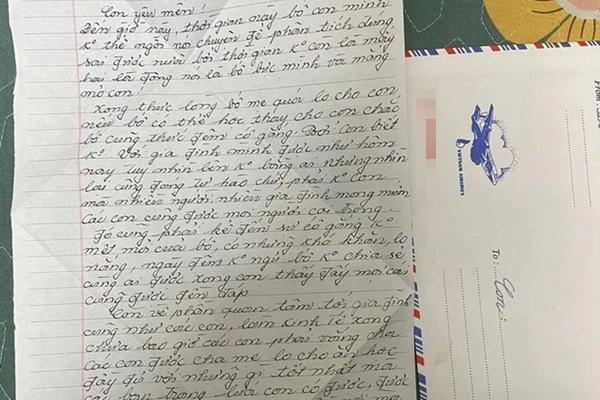 Con yêu mến!
Đến giờ này, thời gian này bố con mình
K° thể ngồi nói chuyện để phân tích đúng
sai được nữa bởi thời gian K° còn là mấy
hai là động nói là bố bực mình và mắng
mỏ con!
Xong thực lòng bố mẹ quá lo cho con,
nếu bố có thể học thay cho con chắc
bố cũng thức đêm cố gắng. Bởi con biết
K°. Với gia đình mình được như hôm
nay tuy nhìn lên K° bằng ai nhưng nhìn
lại cũng đáng tự hào chứ phải K° con
mà nhiều người nhiều gia đình mong muốn
các con cũng được mọi người coi trọng
Đó cũng phải kể đến sự cố gắng K°
mệt mỏi của bố, có những khó khăn, lo
nặng, ngày đêm K° ngủ bố K° chia sẻ
cùng ai được xong con thấy đấy mọi cái
cũng được đền đáp.
Còn về phần quan tâm tới gia đình
cũng như các con, làm kinh tế xong
chưa bao giờ các con phải vắng cha
các con được cha mẹ lo cho ăn học
đầy đủ với những gì tốt nhất mà
các bạn trong lứa con có được, được
VIETNAM AIRLINES
From:
To: Con: